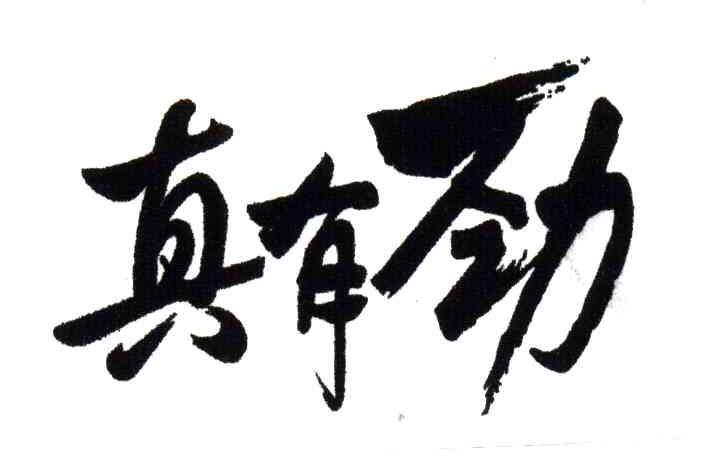 真有劲